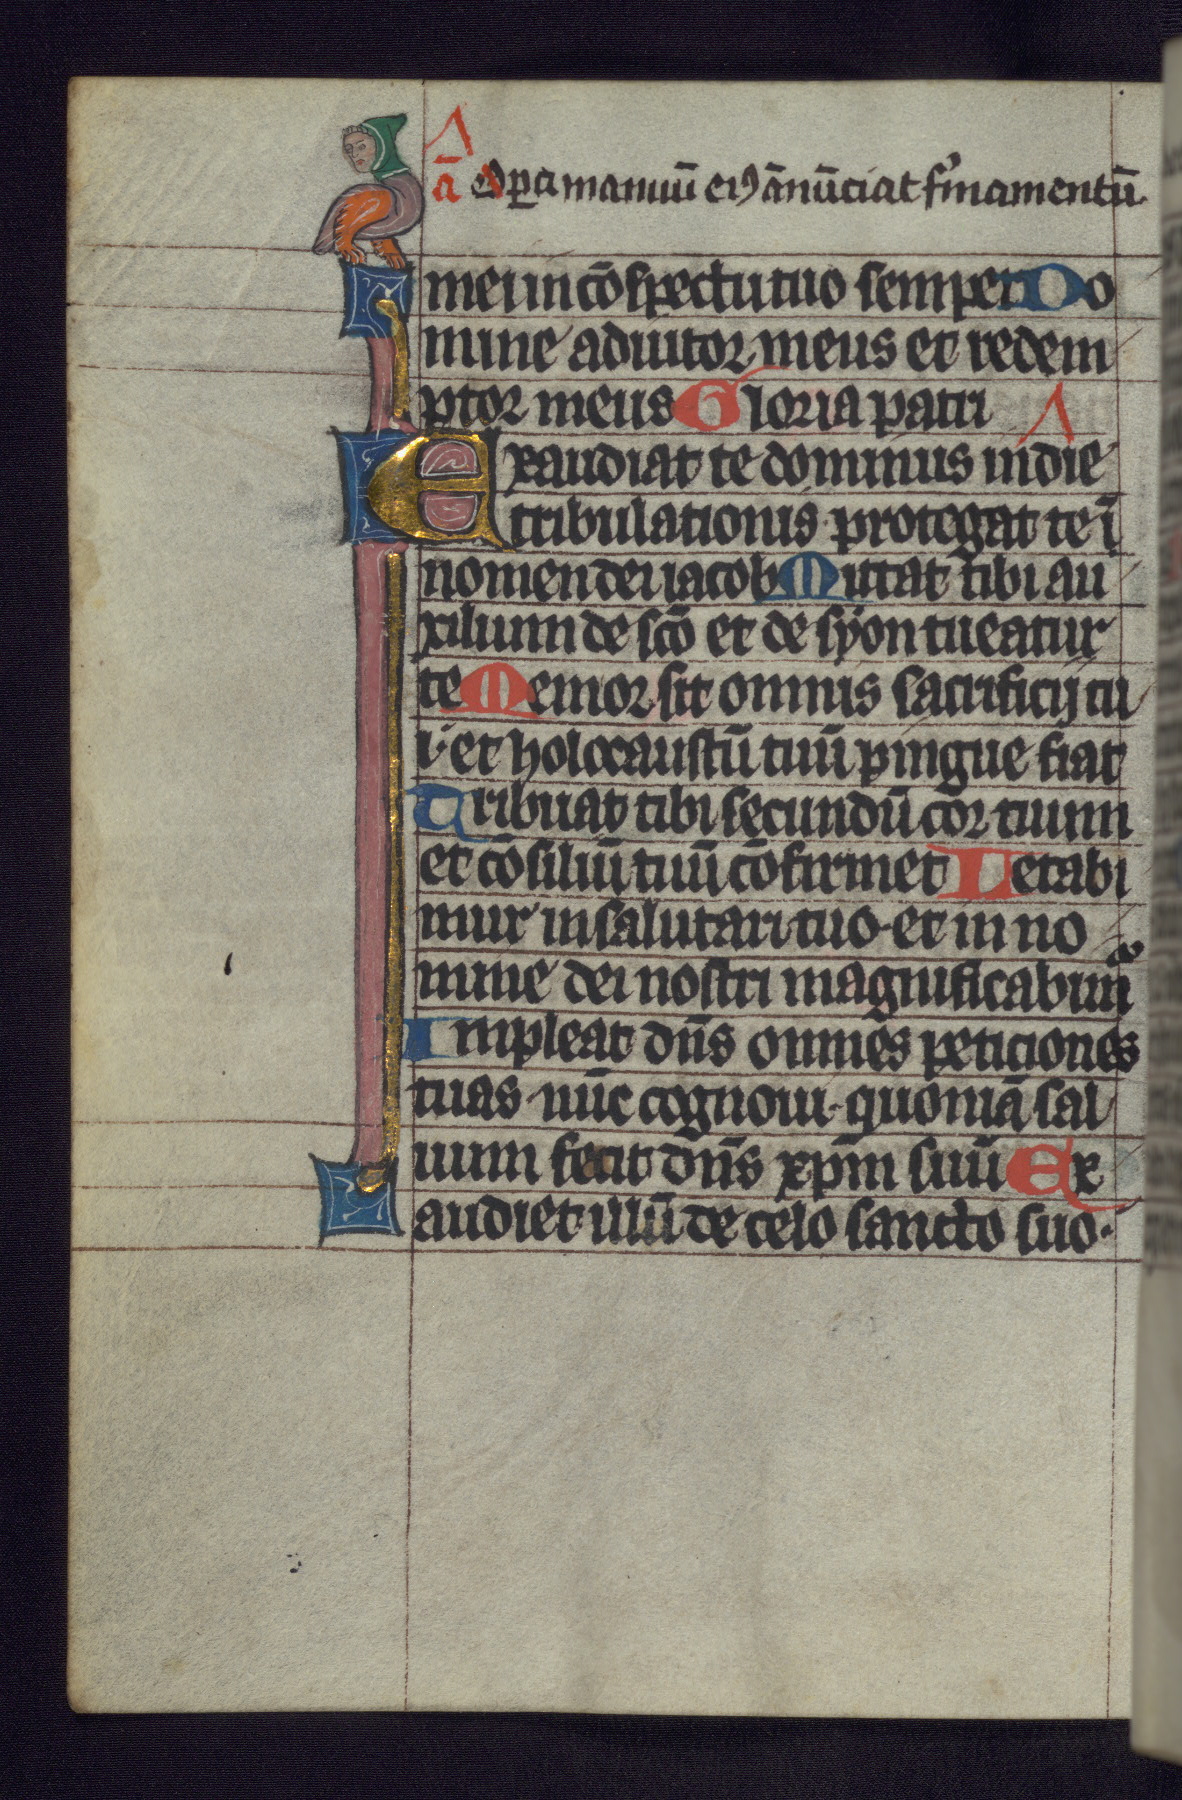 Λ
ā Opa manuū eiꝯ ānūciat firmamentū.
mei in cōspectu tuo semper Do
mine adiutor meus et redem
ptor meus Gloria patri Λ
Exaudiat te dominus in die
tribulationis protegat te ī
nomen dei iacob Mittat tibi au
xilium de scō et de syon tueatur
te Memor sit omnis sacrificij tu
i· et holocaustū tuū pingue fiat
Tribuat tibi secundū cor tuum
et cōsiliū tuū cōfirmet Letabi
mur in salutari tuo· et in no
mine dei nostri magnificabimꝰ
Impleat dn̄s omnes peticiones
tuas· nūc cognoui· quoniā sal
uum fecit dn̄s xp̄m suū Ex
audiet illū de celo sancto suo·